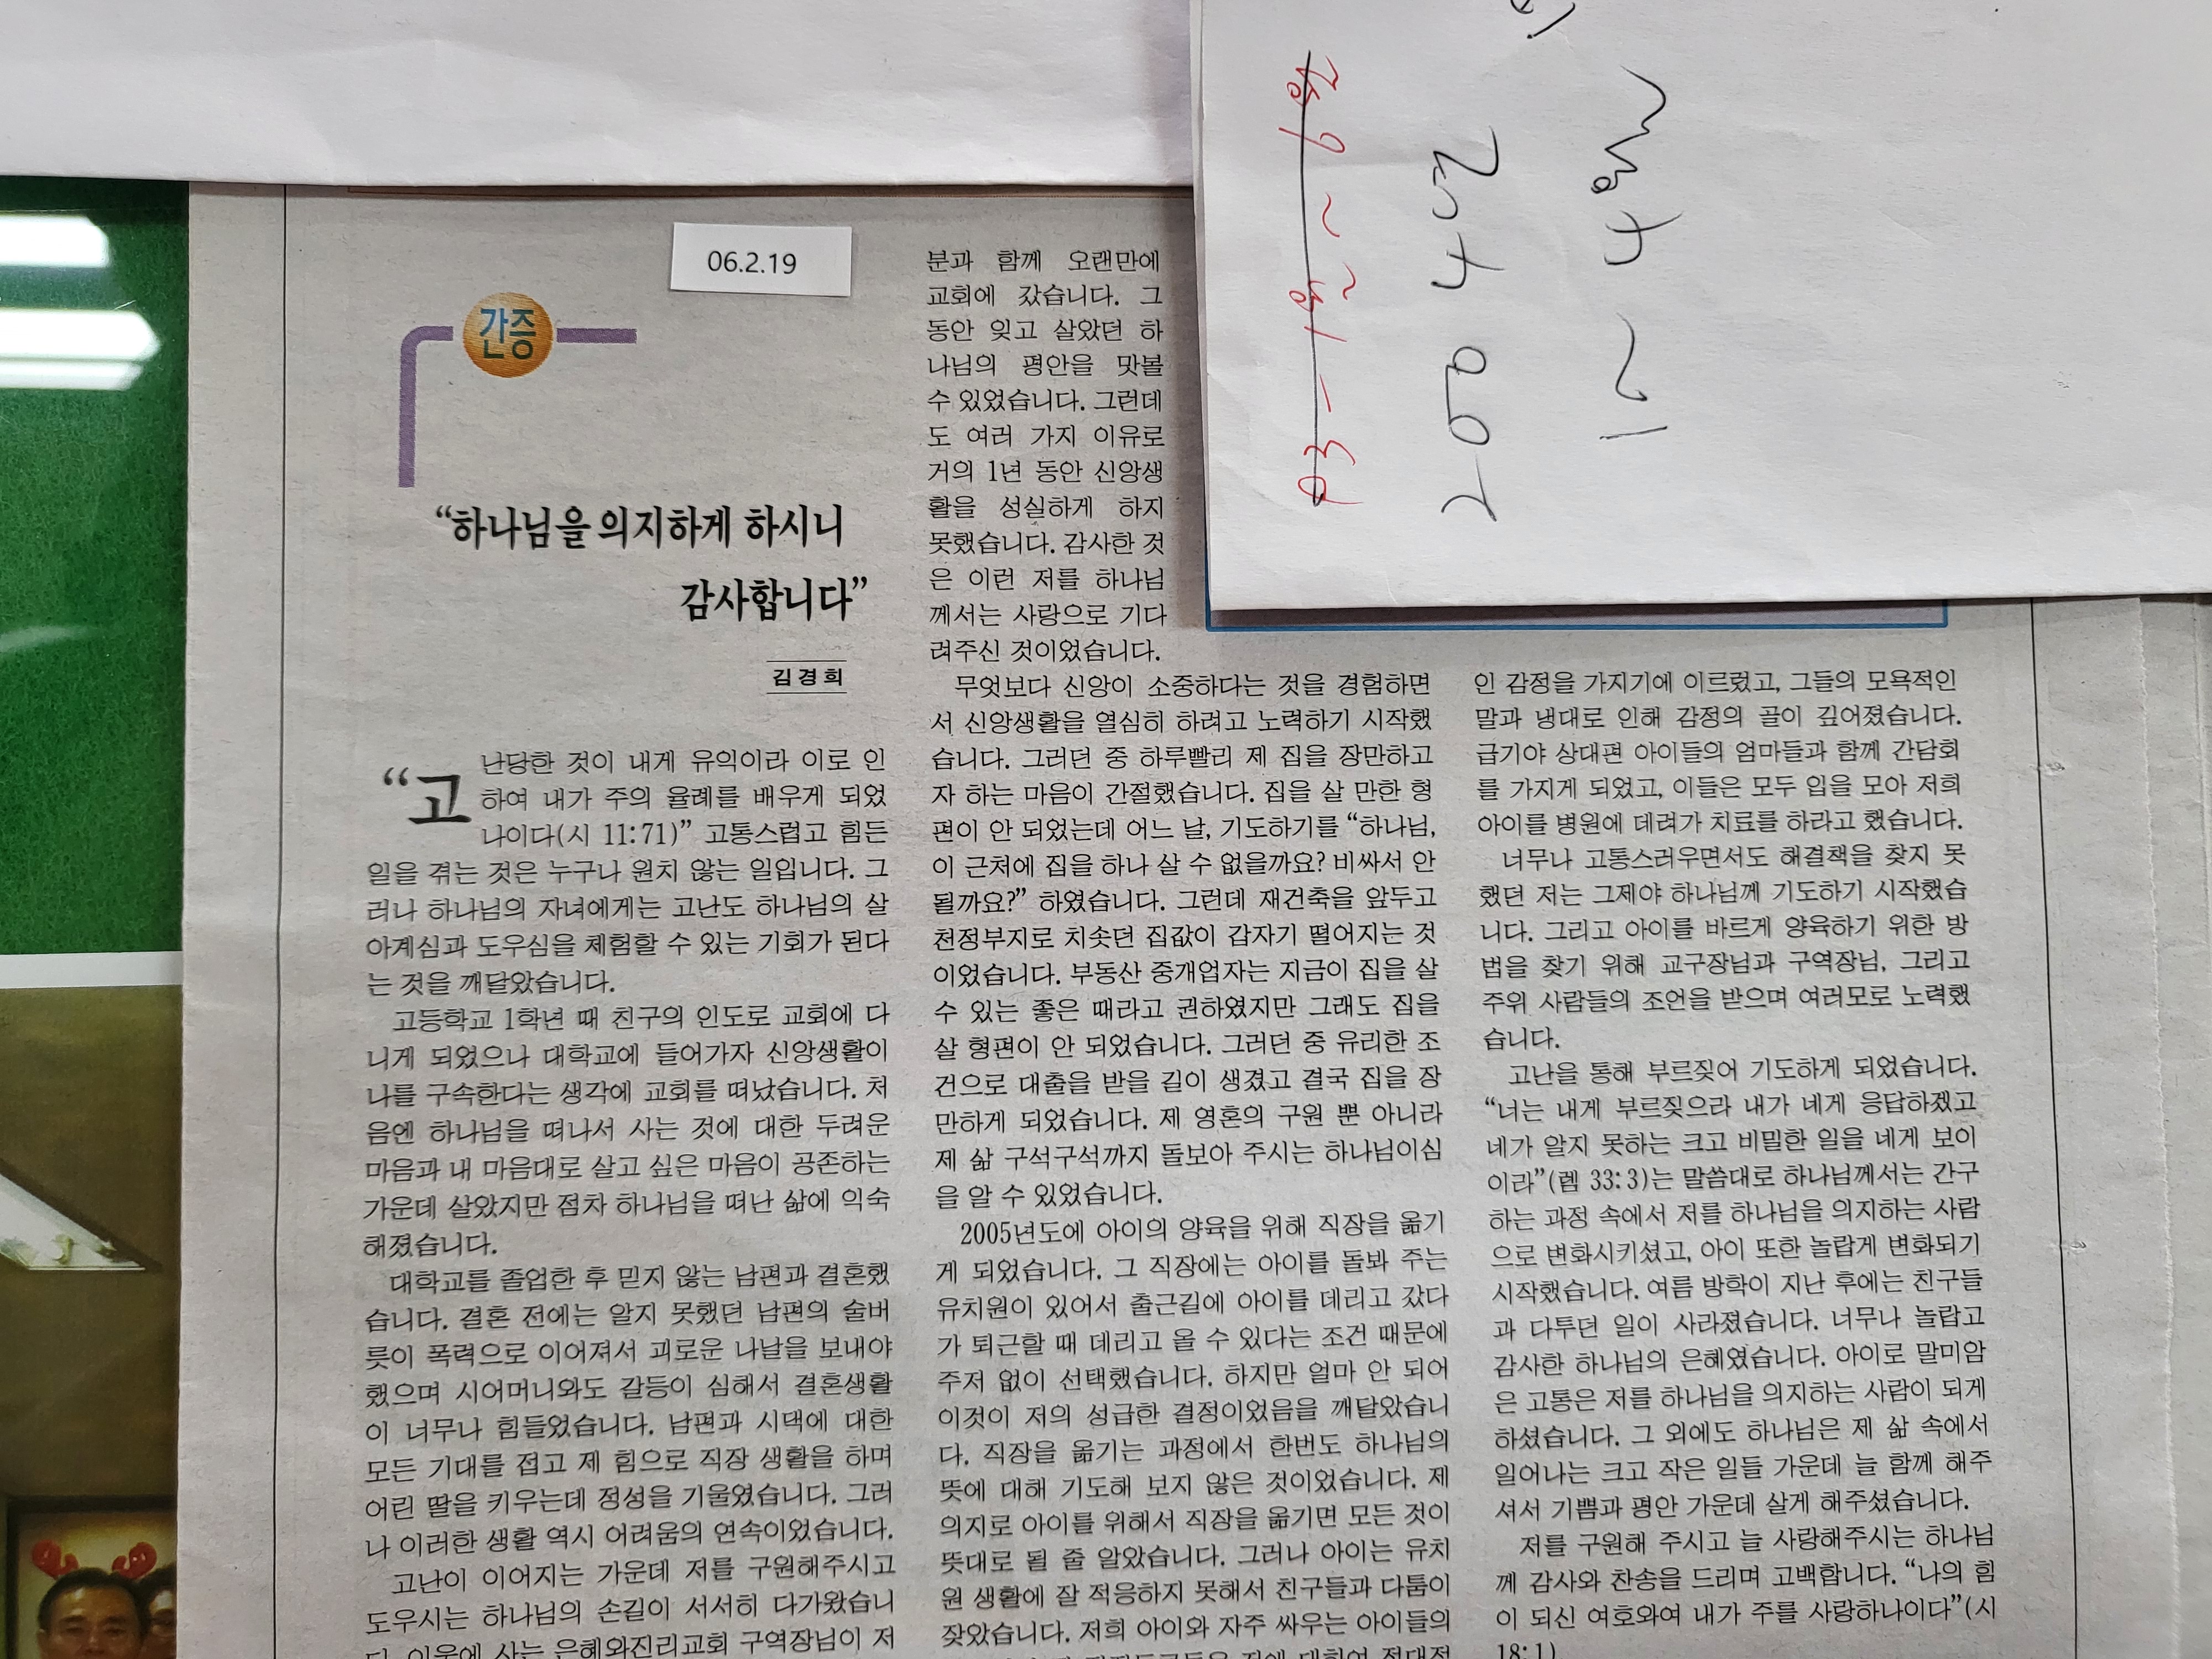 06.2.19
간증
“하나님을 의지하게 하시니
감사합니다”
김경희
“고난당한 것이 내게 유익이라 이로 인
하여 내가 주의 율례를 배우게 되었
나이다(시 11:71)” 고통스럽고 힘든
일을 겪는 것은 누구나 원치 않는 일입니다. 그
러나 하나님의 자녀에게는 고난도 하나님의 살
아계심과 도우심을 체험할 수 있는 기회가 된다
는 것을 깨달았습니다.
고등학교 1학년 때 친구의 인도로 교회에 다
니게 되었으나 대학교에 들어가자 신앙생활이
나를 구속한다는 생각에 교회를 떠났습니다. 처
음엔 하나님을 떠나서 사는 것에 대한 두려운
마음과 내 마음대로 살고 싶은 마음이 공존하는
가운데 살았지만 점차 하나님을 떠난 삶에 익숙
해졌습니다.
대학교를 졸업한 후 믿지 않는 남편과 결혼했
습니다. 결혼 전에는 알지 못했던 남편의 술버
릇이 폭력으로 이어져서 괴로운 나날을 보내야
했으며 시어머니와도 갈등이 심해서 결혼생활
이 너무나 힘들었습니다. 남편과 시댁에 대한
모든 기대를 접고 제 힘으로 직장 생활을 하며
어린 딸을 키우는데 정성을 기울였습니다. 그러
나 이러한 생활 역시 어려움의 연속이었습니다.
고난이 이어지는 가운데 저를 구원해주시고
도우시는 하나님의 손길이 서서히 다가왔습니
다. 이웃에 사는 은혜와진리교회 구역장님이 저
분과 함께 오랜만에
교회에 갔습니다. 그
동안 잊고 살았던 하
나님의 평안을 맛볼
수 있었습니다. 그런데
도 여러 가지 이유로
거의 1년 동안 신앙생
활을 성실하게 하지
못했습니다. 감사한 것
은 이런 저를 하나님
께서는 사랑으로 기다
려주신 것이었습니다.
무엇보다 신앙이 소중하다는 것을 경험하면
서 신앙생활을 열심히 하려고 노력하기 시작했
습니다. 그러던 중 하루빨리 제 집을 장만하고
자 하는 마음이 간절했습니다. 집을 살 만한 형
편이 안 되었는데 어느 날, 기도하기를 “하나님,
이 근처에 집을 하나 살 수 없을까요? 비싸서 안
될까요?” 하였습니다. 그런데 재건축을 앞두고
천정부지로 치솟던 집값이 갑자기 떨어지는 것
이었습니다. 부동산 중개업자는 지금이 집을 살
수 있는 좋은 때라고 권하였지만 그래도 집을
살 형편이 안 되었습니다. 그러던 중 유리한 조
건으로 대출을 받을 길이 생겼고 결국 집을 장
만하게 되었습니다. 제 영혼의 구원 뿐 아니라
제 삶 구석구석까지 돌보아 주시는 하나님이심
을 알 수 있었습니다.
2005년도에 아이의 양육을 위해 직장을 옮기
게 되었습니다. 그 직장에는 아이를 돌봐 주는
유치원이 있어서 출근길에 아이를 데리고 갔다
가 퇴근할 때 데리고 올 수 있다는 조건 때문에
주저 없이 선택했습니다. 하지만 얼마 안 되어
이것이 저의 성급한 결정이었음을 깨달았습니
다. 직장을 옮기는 과정에서 한번도 하나님의
뜻에 대해 기도해 보지 않은 것이었습니다. 제
의지로 아이를 위해서 직장을 옮기면 모든 것이
뜻대로 될 줄 알았습니다. 그러나 아이는 유치
원 생활에 잘 적응하지 못해서 친구들과 다툼이
잦았습니다. 저희 아이와 자주 싸우는 아이들의
인 감정을 가지기에 이르렀고, 그들의 모욕적인
말과 냉대로 인해 감정의 골이 깊어졌습니다.
급기야 상대편 아이들의 엄마들과 함께 간담회
를 가지게 되었고, 이들은 모두 입을 모아 저희
아이를 병원에 데려가 치료를 하라고 했습니다.
너무나 고통스러우면서도 해결책을 찾지 못
했던 저는 그제야 하나님께 기도하기 시작했습
니다. 그리고 아이를 바르게 양육하기 위한 방
법을 찾기 위해 교구장님과 구역장님, 그리고
주위 사람들의 조언을 받으며 여러모로 노력했
습니다.
고난을 통해 부르짖어 기도하게 되었습니다.
“너는 내게 부르짖으라 내가 네게 응답하겠고
네가 알지 못하는 크고 비밀한 일을 네게 보이
이라”(렘 33:3)는 말씀대로 하나님께서는 간구
하는 과정 속에서 저를 하나님을 의지하는 사람
으로 변화시키셨고, 아이 또한 놀랍게 변화되기
시작했습니다. 여름 방학이 지난 후에는 친구들
과 다투던 일이 사라졌습니다. 너무나 놀랍고
감사한 하나님의 은혜였습니다. 아이로 말미암
은 고통은 저를 하나님을 의지하는 사람이 되게
하셨습니다. 그 외에도 하나님은 제 삶 속에서
일어나는 크고 작은 일들 가운데 늘 함께 해주
셔서 기쁨과 평안 가운데 살게 해주셨습니다.
저를 구원해 주시고 늘 사랑해주시는 하나님
께 감사와 찬송을 드리며 고백합니다. “나의 힘
이 되신 여호와여 내가 주를 사랑하나이다”(시
18:1)